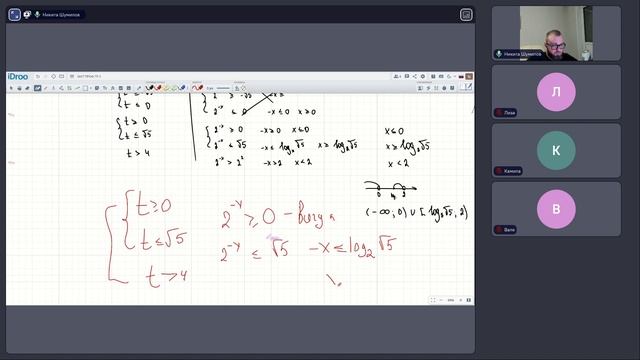 Никита Шумилов
iDroo
t ≤ 0
2⁻ˣ ≤ 0 -x ≤ 0 x ≥ 0
t ≥ 0
t ≤ √5
t > 4
2⁻ˣ ≥ 0 -x ≥ 0 x ≤ 0
2⁻ˣ ≤ √5 -x ≤ log₂√5 x ≥ log₂√5
2⁻ˣ > 2² -x > 2 x < 2
x ≤ 0
x ≥ log₂√5
x < 2
0 2
(-∞; 0) ∪ [log₂√5; 2)
t ≥ 0
t ≤ √5
t > 4
2⁻ˣ ≥ 0 -
2⁻ˣ ≤ √5 -x ≤ log₂√5
Никита Шумилов
Л
Лиза
К
Камила
В
Валя